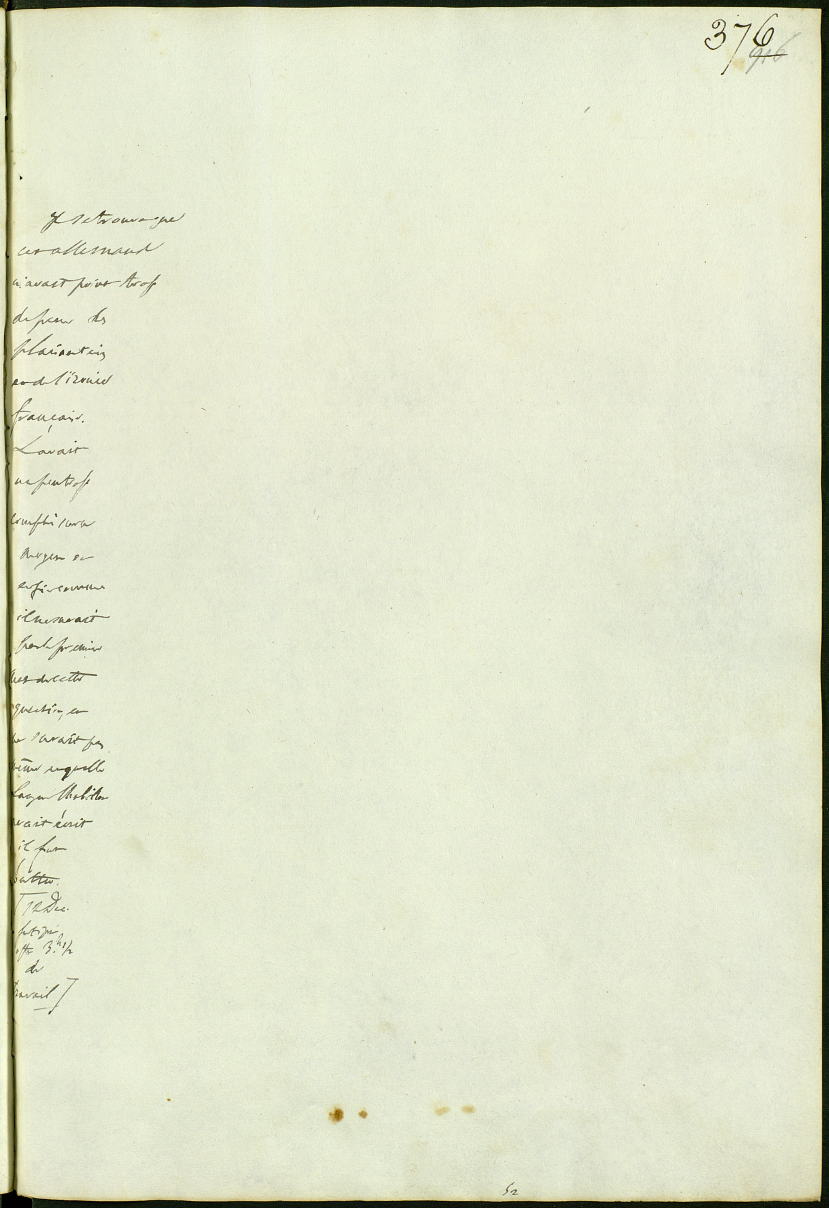 376
916
Il se trouva que
cet allemand
n'avait point trop
de peur des
plaisanteries
et de l'ironie
française.
L'avait
un peu trop
compté sur
argent et
enfin comme
il ne savait
pas le premier
mot de cette
question, et
ne savait pas
même en quelle
avait écrit
il fut
battu.
[12 Dec.
fatigué
3.h 1/2
de
travail]